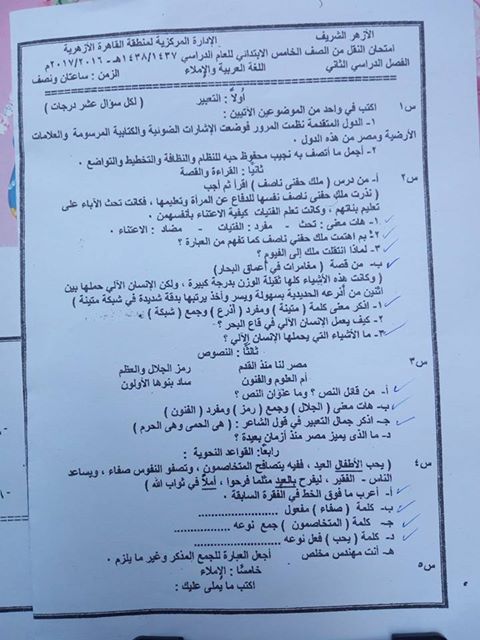 الأزهر الشريف
الإدارة المركزية لمنطقة القاهرة الأزهرية
امتحان النقل من الصف الخامس الابتدائي للعام الدراسي ١٤٣٧/١٤٣٨هـ - ٢٠١٦/٢٠١٧م
الفصل الدراسي الثاني اللغة العربية والإملاء الزمن : ساعتان ونصف
أولاً : التعبير ( لكل سؤال عشر درجات )
س١ اكتب في واحد من الموضوعين الآتيين :
١- الدول المتقدمة نظمت المرور فوضعت الإشارات الضوئية والكتابية المرسومة والعلامات
الأرضية ومصر من هذه الدول ٠
٢- أجمل ما أتصف به نجيب محفوظ حبه للنظام والنظافة والتخطيط والتواضع ٠
ثانيًا : القراءة والقصة
س٢ أ- من درس ( ملك حفنى ناصف ) اقرأ ثم أجب
( نذرت ملك حفني ناصف نفسها للدفاع عن المرأة وتعليمها ، فكانت تحث الآباء على
تعليم بناتهم ، وكانت تعلم الفتيات كيفية الاعتناء بأنفسهن ٠
١- هات معنى : تحث - مفرد : الفتيات - مضاد : الاعتناء ٠
٢- بم اهتمت ملك حفني ناصف كما تفهم من العبارة ؟
٣- لماذا انتقلت ملك إلى الفيوم ؟
ب- من قصة ( مغامرات في أعماق البحار)
( وكانت هذه الأشياء كلها ثقيلة الوزن بدرجة كبيرة ، ولكن الإنسان الآلي حملها بين
اثنتين من أذرعه الحديدية بسهولة ويسر وأخذ يرتبها بدقة شديدة في شبكة متينة )
١- اذكر معنى كلمة ( متينة ) ومفرد ( أذرع ) وجمع ( شبكة ) ٠
٢- كيف يعمل الإنسان الآلي في قاع البحر ؟
٣- ما الأشياء التي يحملها الإنسان الآلي ؟
ثالثًا : النصوص
س٣ مصر لنا منذ القدم رمز الجلال والعظم
أم العلوم والفنون ساد بنوها الأولون
أ- من قائل النص ؟ وما عنوان النص ؟
ب- هات معنى ( الجلال ) وجمع ( رمز ) ومفرد ( الفنون )
جـ- اذكر جمال التعبير في قول الشاعر : ( هى الحمى وهى الحرم )
د- ما الذى يميز مصر منذ أزمان بعيدة ؟
رابعًا : القواعد النحوية :
س٤ ( يحب الأطفال العيد ، ففيه يتصافح المتخاصمون ، وتصفو النفوس صفاء ، ويساعد
الناس - الفقير ، ليفرح بالعيد مثلما فرحوا ، أملاً في ثواب الله )
أ - أعرب ما فوق الخط في الفقرة السابقة ٠
ب- كلمة ( صفاء ) مفعول ........................
جـ- كلمة ( المتخاصمون ) جمع نوعه ........................
د- كلمة ( يحب ) فعل نوعه ........................
هـ- أنت مهندس مخلص اجعل العبارة للجمع المذكر وغير ما يلزم ٠
خامسًا : الإملاء
س٥ اكتب ما يُملى عليك :